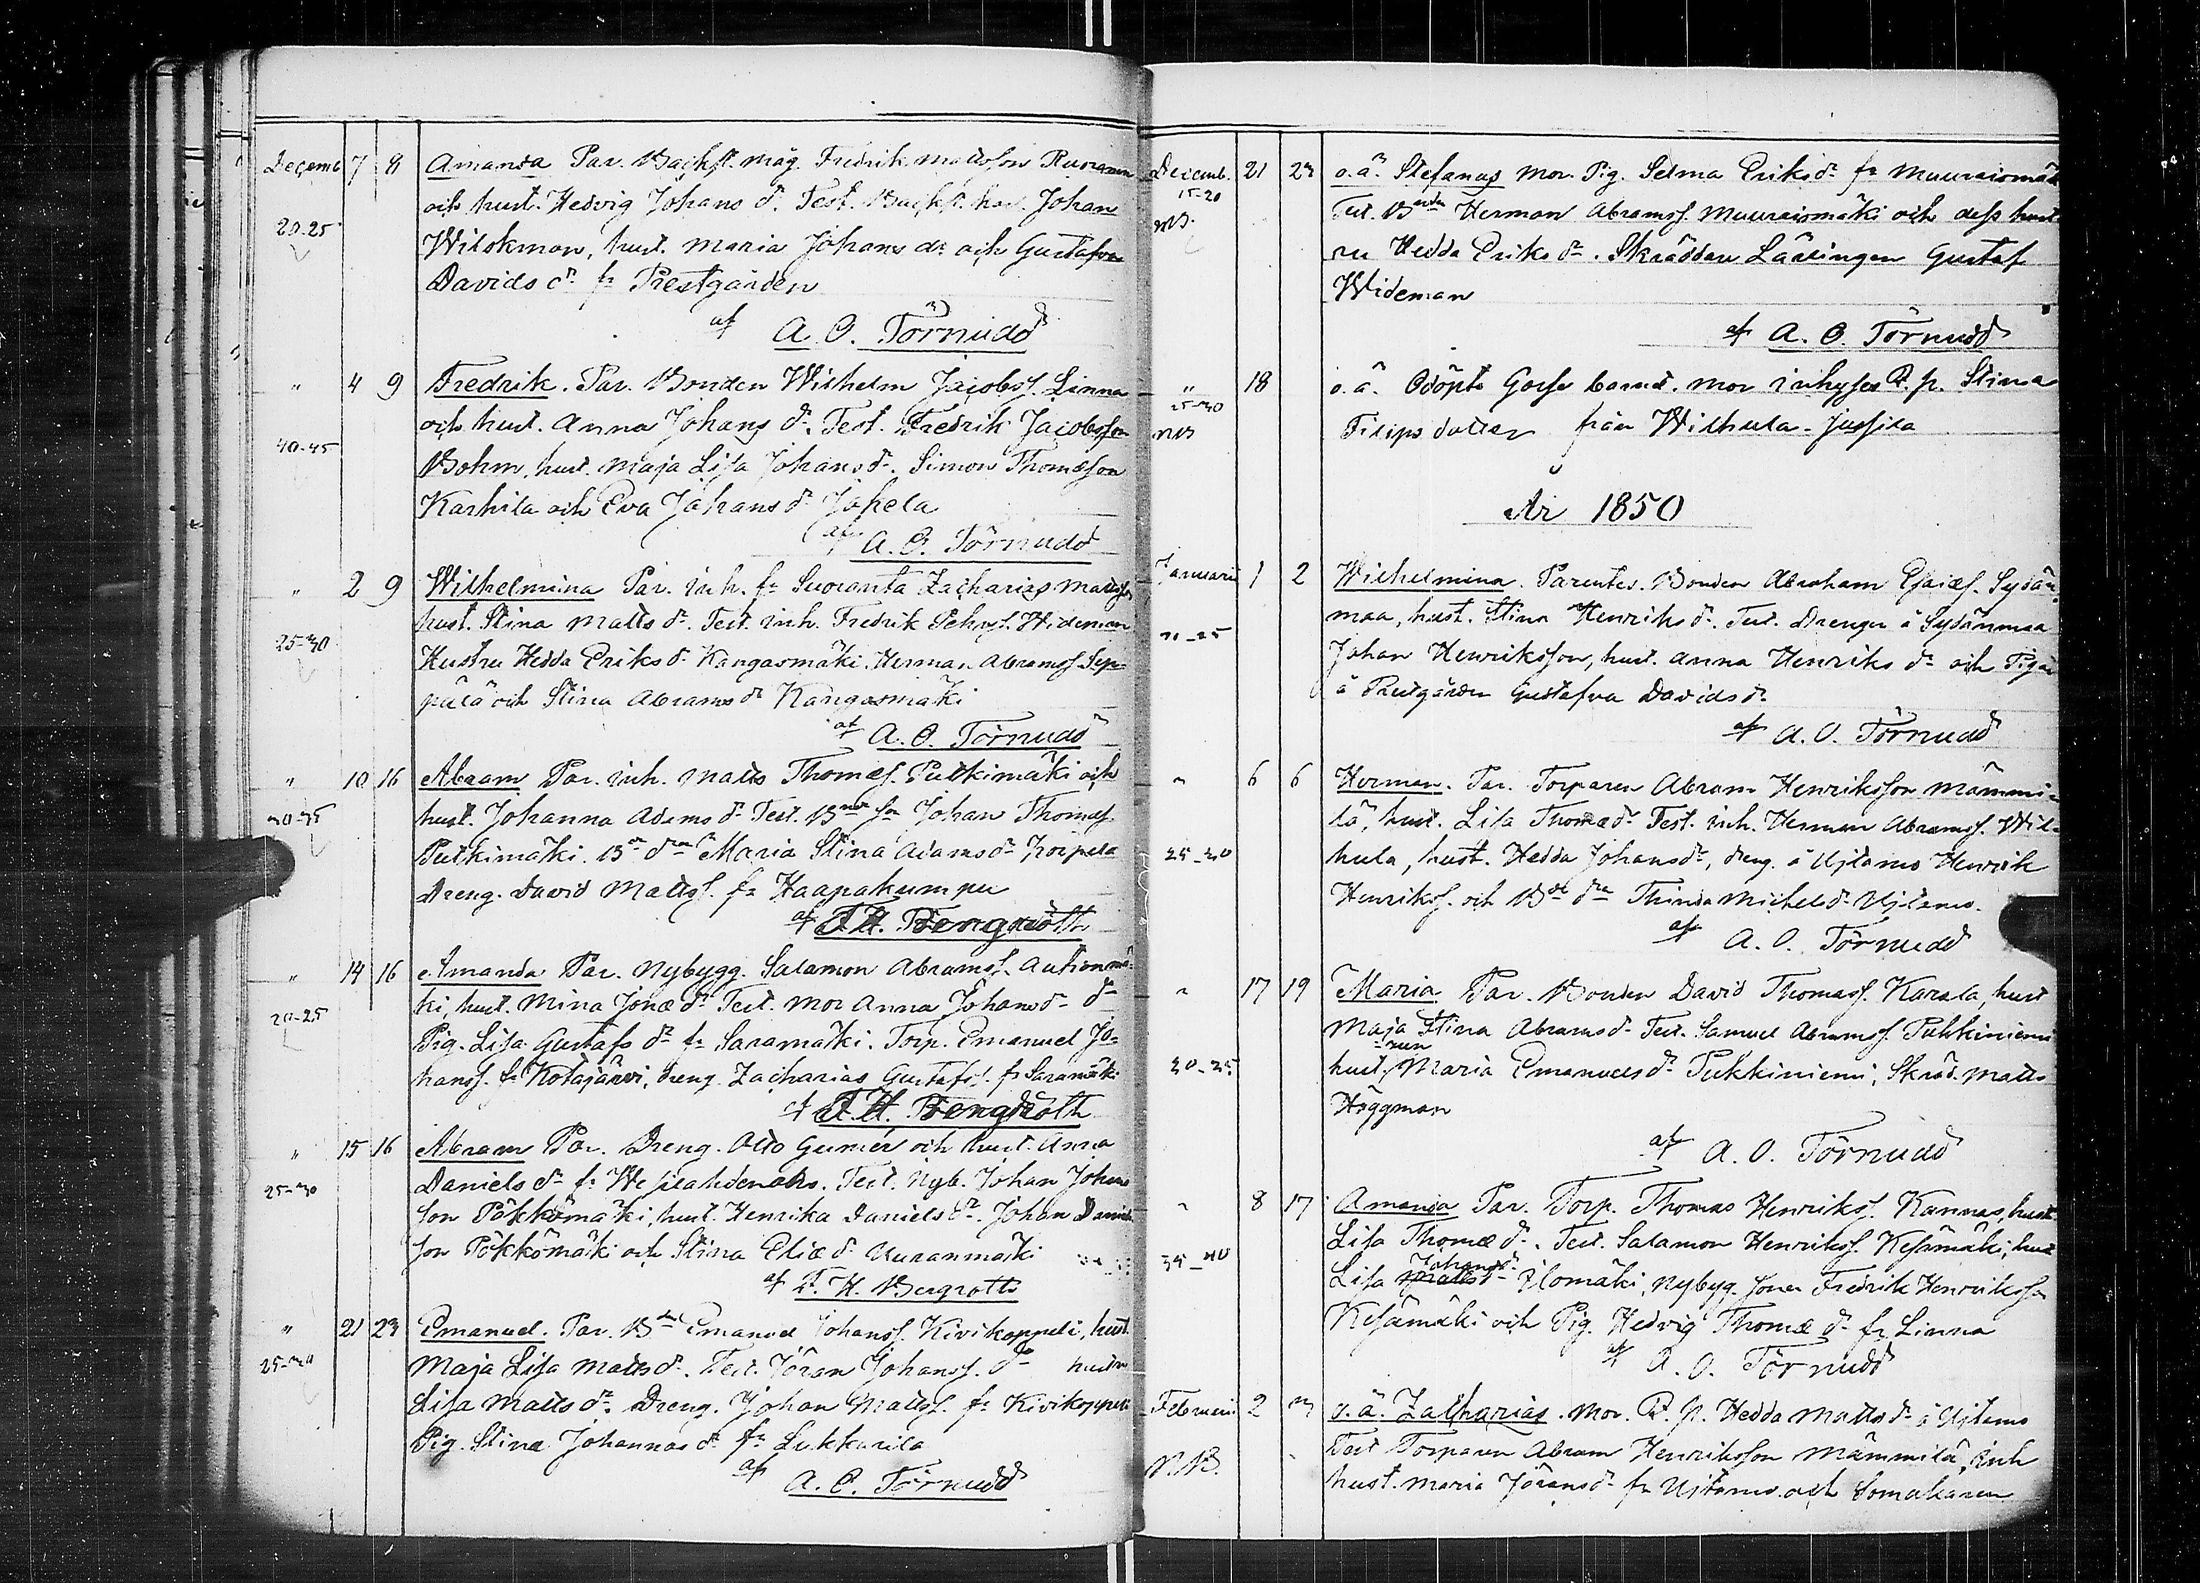 Decemb 7 8 Amanda Par. Backst. måg. Fredrik Mattsson
och hust. Hedvig Johans dr. Test. Backst. kar. Johan
20-25 Wilokman, hust. Maria Johans dr och Gustafva
Davids dr fr Prestgården
af A. O. Törnudd
" 4 9 Fredrik. Par. Bonden Wilhelm Jacobss. Linna
och hust. Anna Johans dr. Test. Fredrik Jacobsson
40-45 Bohm, hust. Maja Lisa Johans dr. Simon Thomæson
Karhila och Eva Johans dr Jokela
af A. O. Törnudd
" 2 9 Wilhelmina Par. inh. fr Suoranta Zacharias Matts
hust. Stina Matts dr. Test. inh. Fredrik Wideman
25-30 Hustru Hedda Eriks dr Kangasmäki. Herman Abramss Sep-
pälä och Stina Abrams dr Kangasmäki
af A. O. Törnudd
" 10 16 Abram Par. inh. Matts Thomæs. Putkimäki och
hust. Johanna Adams dr Test. Bne sn Johan Thomæs.
30-35 Putkimäki. Be drn Maria Stina Adams dr Korpela
Dreng. David Mattss. fr Haapakumpu
af F. H. Bergroth
" 14 16 Amanda Par. Nybygg. Salamon Abramss. Autionmä-
ki, hust. Mina Jonæ dr Test. Mor Anna Johans dr do
20-25 Pig. Lisa Gustafs dr fr Saramäki. Torp. Emanuel Jo-
hanss. fr Kotajärvi, dreng Zacharias Gustafs. fr Saramäki
af F. H. Bergroth
" 15 16 Abram Par. Dreng. Otto Gumér och hust. Anna
25-30 Daniels dr fr Test. Nyb. Johan Johans
son Pökkömäki, hust. Henrika Daniels dr. Johan Daniels
son Pökkömäki och Stina Eliæ dr Vuranmäki
af F. H. Bergroth
" 21 23 Emanuel. Par. Bd Emanuel Johanss. Kivikoppeli, hust.
25-30 Maja Lisa Matts dr. Test. Jöran Johanss. do hustru
Lisa Matts dr. Dreng. Johan Mattss. fr Kivikoppeli
Pig. Stina Johannas dr fr Lukkarila
af A. O. Törnudd
Decemb. 21 23 o.ä. Stefanus Mor. Pig. Selma Eriks dr fr Muuraismäk
15-20 Test. Bonden Herman Abramss. Muuraismäki och dess hust
NB. ru Hedda Eriks dr. Skräddare Lärlingen Gustaf
Wideman
af A. O. Törnudd
" 18 o.ä. Odöpte Gosse barnet. Mor inhyses P. p. Stina
25-30
NB Filips dotter från Wilhula-Jussila
År 1850
Januarii 1 2 Wilhelmina. Parentes. Bonden Abraham Esaiæs. Sydän-
maa, hust. Stina Henriks dr. Test. Drengen å Sydänmaa
20-25 Johan Henriksson, hust. Anna Henriks dr och Pigan
å Prestgården Gustafva Davids dr
af A. O. Törnudd
" 6 6 Herman. Par. Torparen Abram Henriksson Mämmi-
lä, hust. Lisa Thomæ dr Test. inh. Herman Abramss. Wil-
25-30 hula, hust. Hedda Johans dr, dreng. å Ujtamo Henrik
Henrikss. och Bde drn Michels dr Ujtamo.
af A. O. Törnudd
" 17 19 Maria Par. Bonden David Thomass. Karala, hust
Maja Stina Abrams dr Test. Samuel Abramss. Pukkiniemi
20-25 hust. Maria Emanuels dr Pukkiniemi, Skräd. Matts
Häggman
af A. O. Törnudd
" 8 17 Amanda Par. Torp. Thomas Henrikss. Kannas, hust
Lisa Thomæ dr. Test. Salamon Henrikss. Kesämäki, hust
35-40 Lisa Johans dr Ilomäki, Nybyg. sonen Fredrik Henriksson
Kesämäki och Pig. Hedvig Thomæ dr fr Linna
af A. O. Törnudd
Februarii 2 3 o.ä. Zacharias. Mor. P. p. Hedda Matts dr å Ujtamo
Test Torparen Abram Henriksson Mämmilä, Inh
N.B. hust. Maria Jörans dr fr Ujtamo och Somakaren